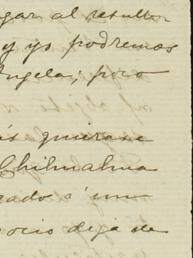 gar al resultar
y yo podremos
Angela; pero
ás quierase
Chihualma
rado á un
ocio deja de